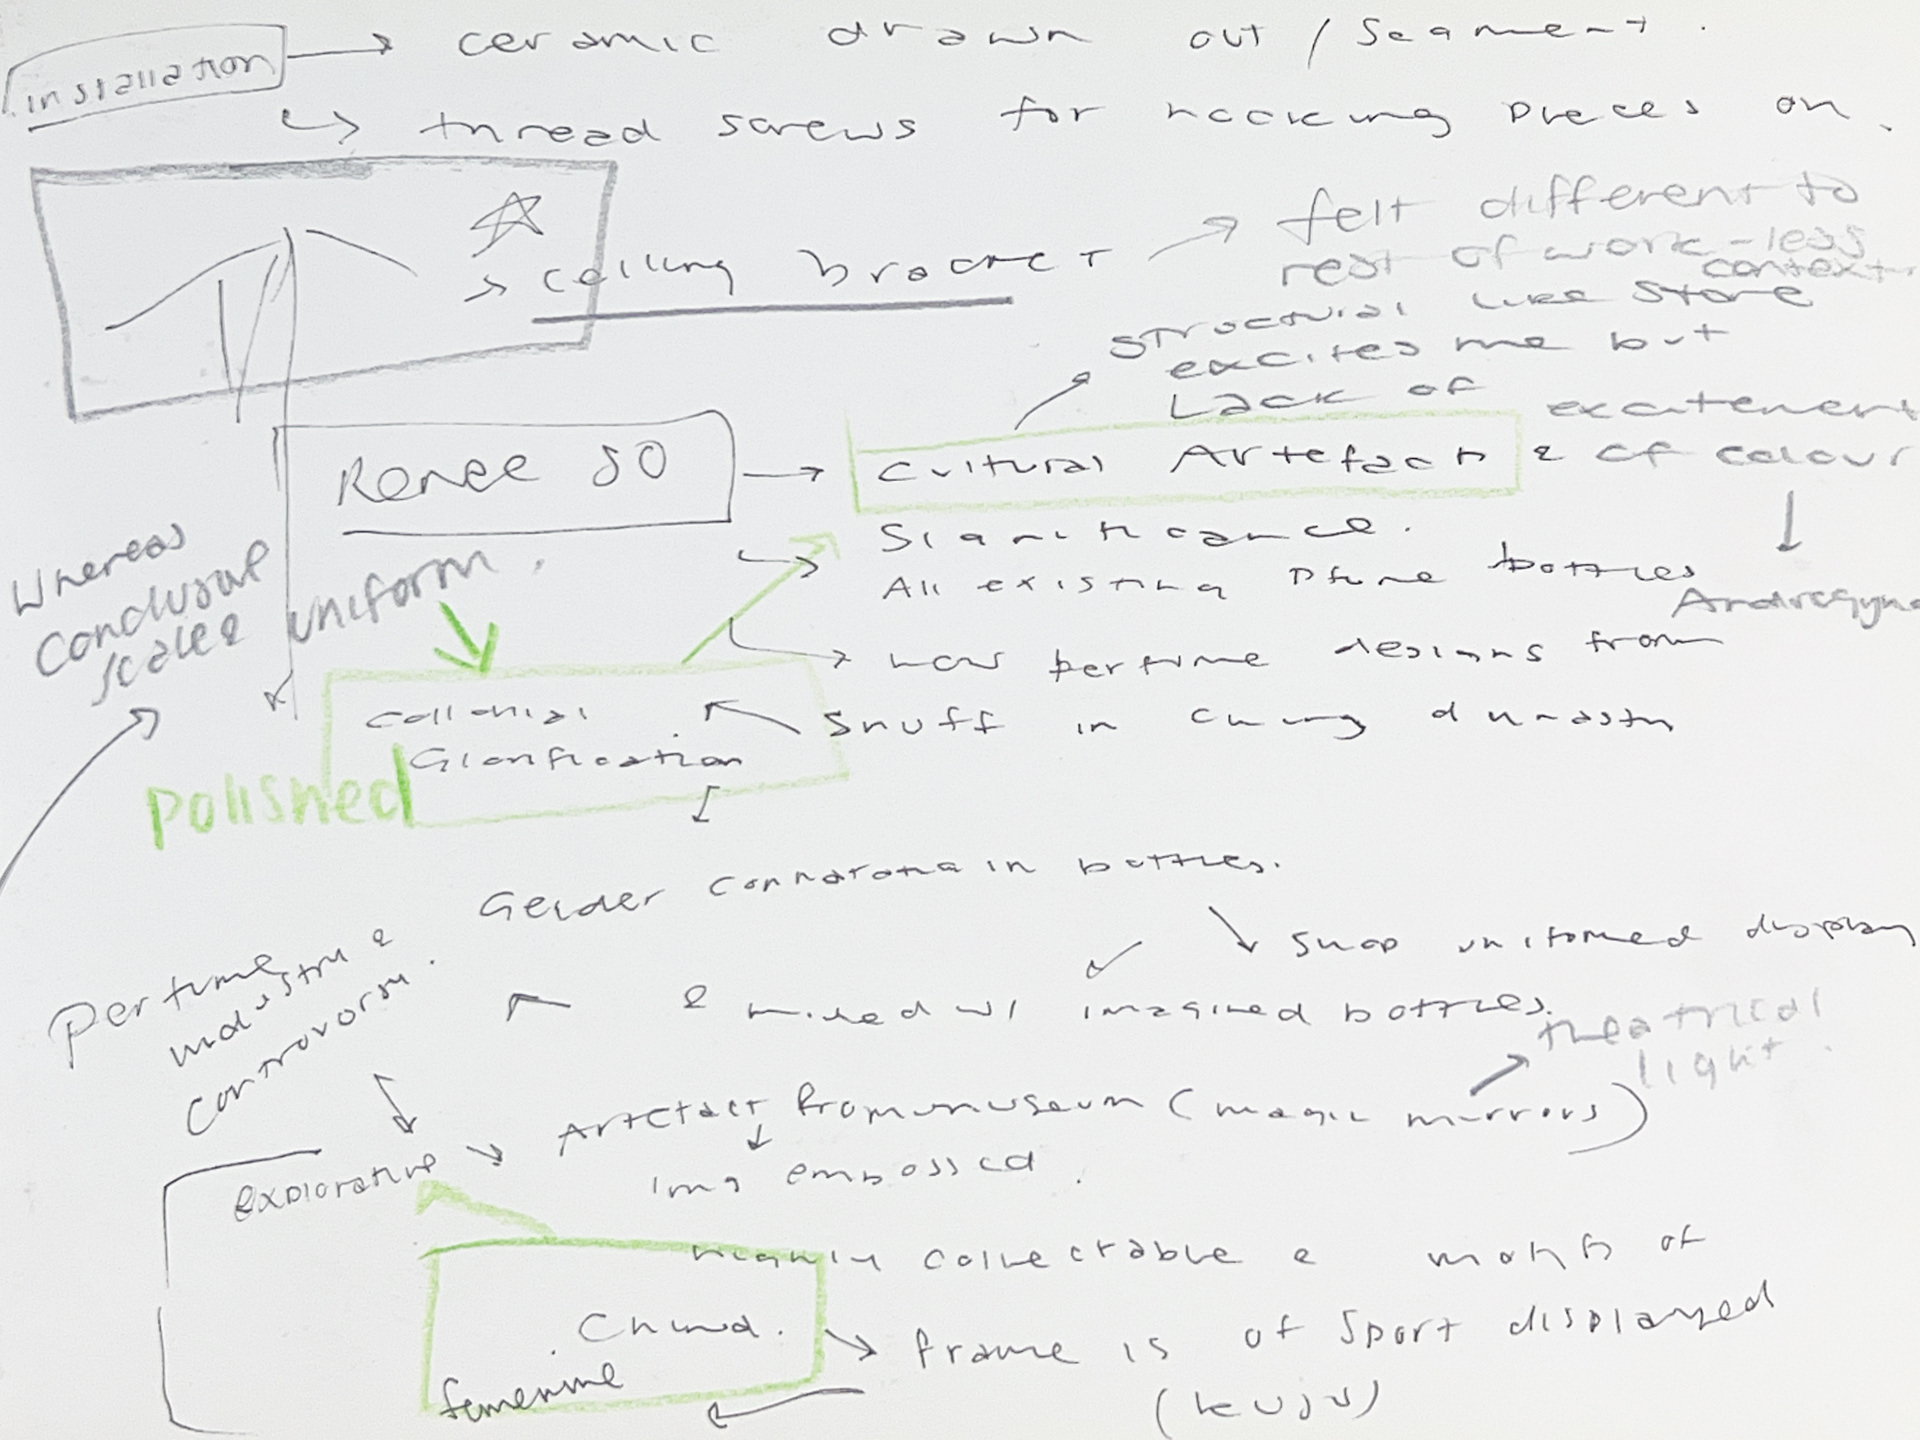 installation → ceramic drawn out / segment.
↳ thread screws for hooking pieces on.
→ ceiling bracket → felt different to
rest of work - less
context
structural like store
excites me but
Lack of excitement
& of colour
Androgyno
Renee SO → Cultural Artefacts
Significance.
↳ All existing Pfume bottles
Whereas
Conclusove
scale & uniform.
↳ how perfume designs from
snuff in Ching dynasty
Collonial
Glorification
polished
Gender Connatrona in bottles.
Snap uniformed display
& mixed w/ imagined bottles.
theatrical
light.
Perfume
industry &
controvorsy.
explorative
Artefact from museum (magic mirrors)
img embossed.
highly collectable & motifs of
China.
femenine
frame is of sport displayed
(kuju)